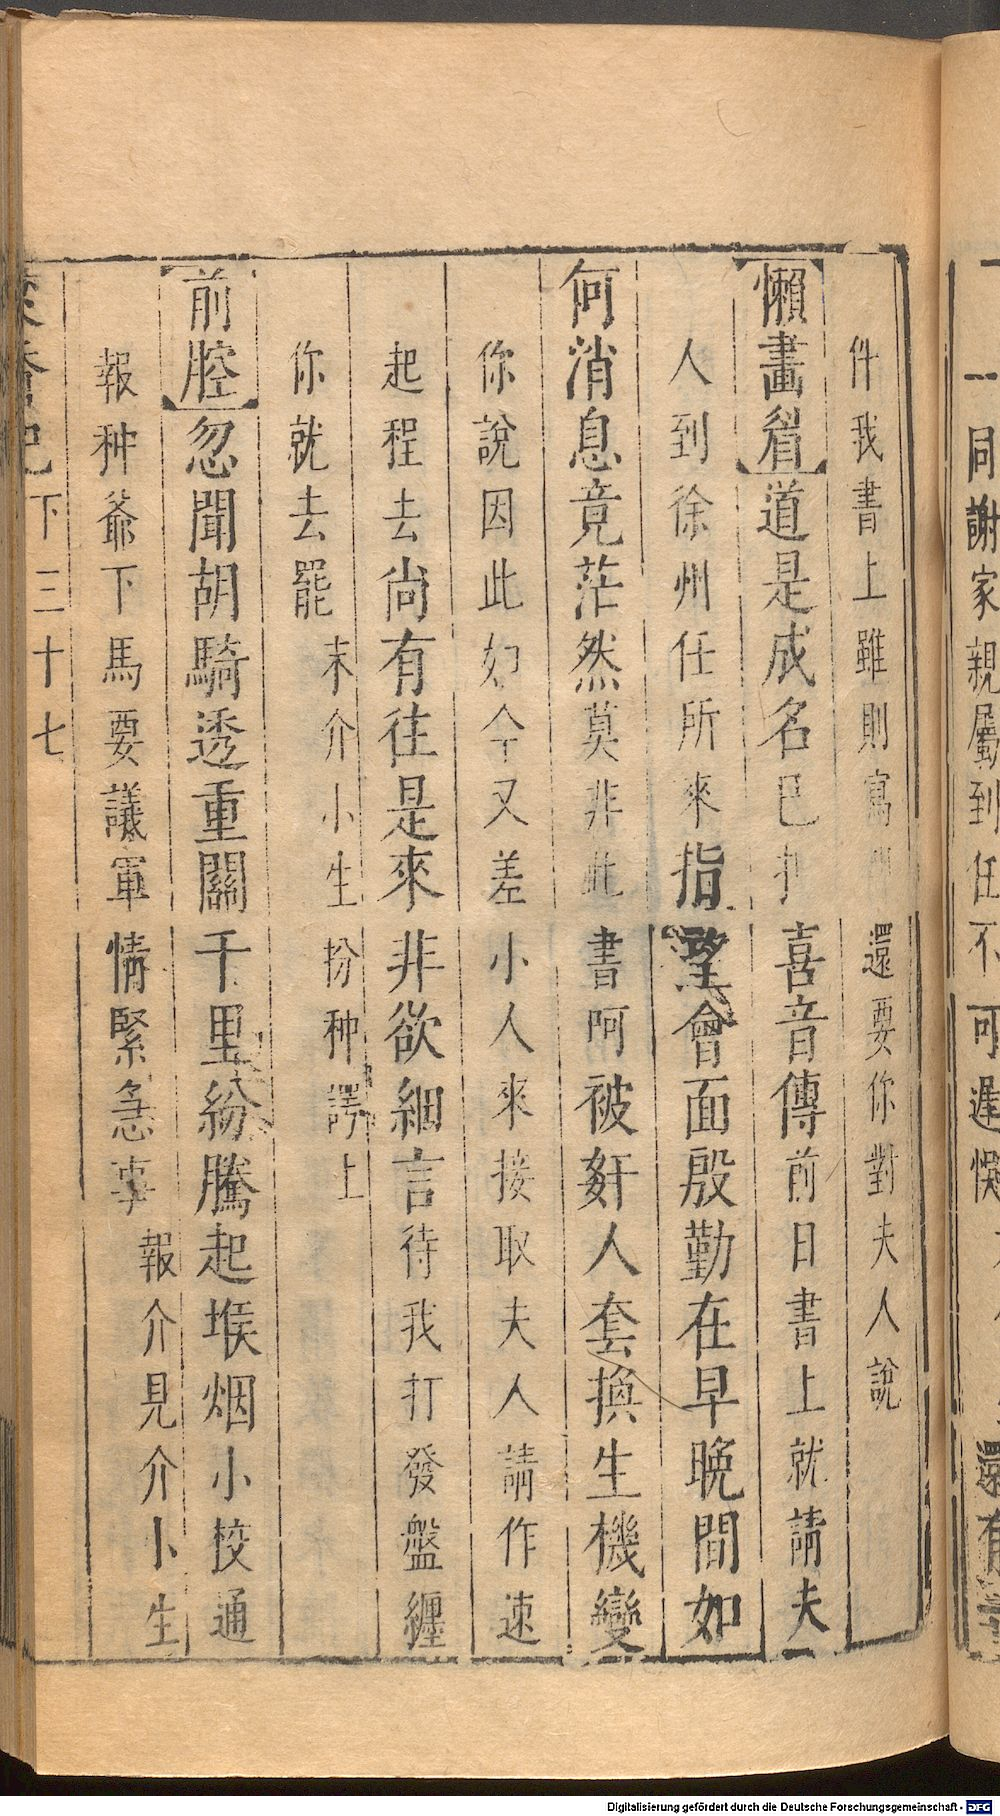 一同謝家親屬到任不可遲悞
還有
件我書上雖則寫還要你對夫人說
懶畫眉道是成名喜音傳前日書上就請夫
人到徐州任所來指望會面殷勤在早晚間如
何消息竟茫然莫非此書阿被奸人套換生機變
你說因此如今又差小人來接取夫人請作速
起程去尚有往是來非欲細言待我打發盤纏
你就去罷末介小生扮种諤上
前腔忽聞胡騎透重關千里紛騰起堠烟小校通
報种爺下馬要議軍情緊急事報介見介小生
下三十七
Digitalisierung gefördert durch die Deutsche Forschungsgemeinschaft - DFG